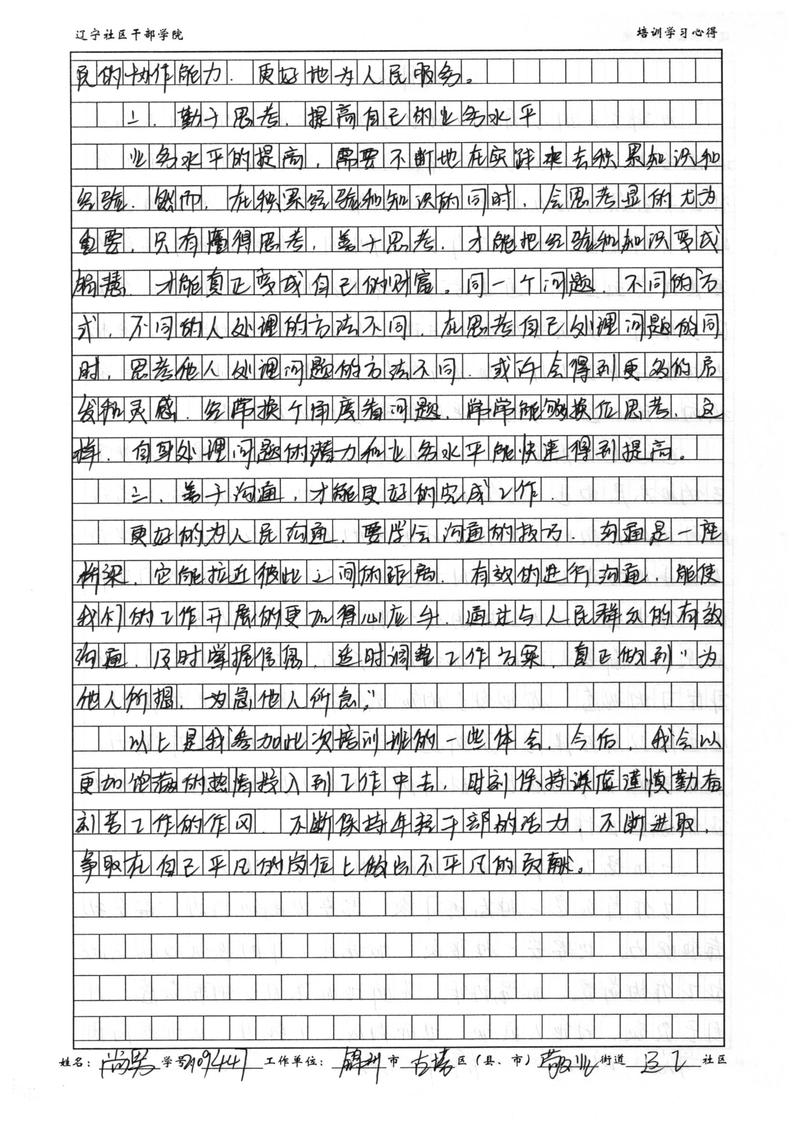 辽宁社区干部学院 培训学习心得
民的协作能力．更好地为人民服务。
二．勤于思考．提高自己的业务水平
业务水平的提高，需要不断地在实践来去积累知识和
经验．然而，在积累经验和知识的同时，会思考显的尤为
重要，只有懂得思考，善于思考．才能把经验和知识变成
智慧．才能真正变成自己的财富。同一个问题．不同的方
式，不同的人处理的方法不同．在思考自己处理问题的同
时，思考他人处理问题的方法不同．或许会得到更多的启
发和灵感．经常换个角度看问题．常常能够换位思考．这
样．自身处理问题的潜力和业务水平能快速得到提高。
三．善于沟通，才能更好的完成工作．
更好的为人民沟通，要学会沟通的技巧．沟通是一座
桥梁，它能拉近彼此之间的距离．有效的进行沟通，能使
我们的工作开展的更加得心应手．通过与人民群众的有效
沟通，及时掌握信息．适时调整工作方案．真正做到"为
他人所想．为急他人所急。"
以上是我参加此次培训班的一些体会．今后，我会以
更加饱满的热情投入到工作中去．时刻保持谦虚谨慎勤奋
刻苦工作的作风．不断保持年轻干部的活力，不断进取，
争取在自己平凡的岗位上做出不平凡的贡献。
姓名： 尚 学号 工作单位： 锦州 市 古塔 区（县、市） 敬业 街道 社区